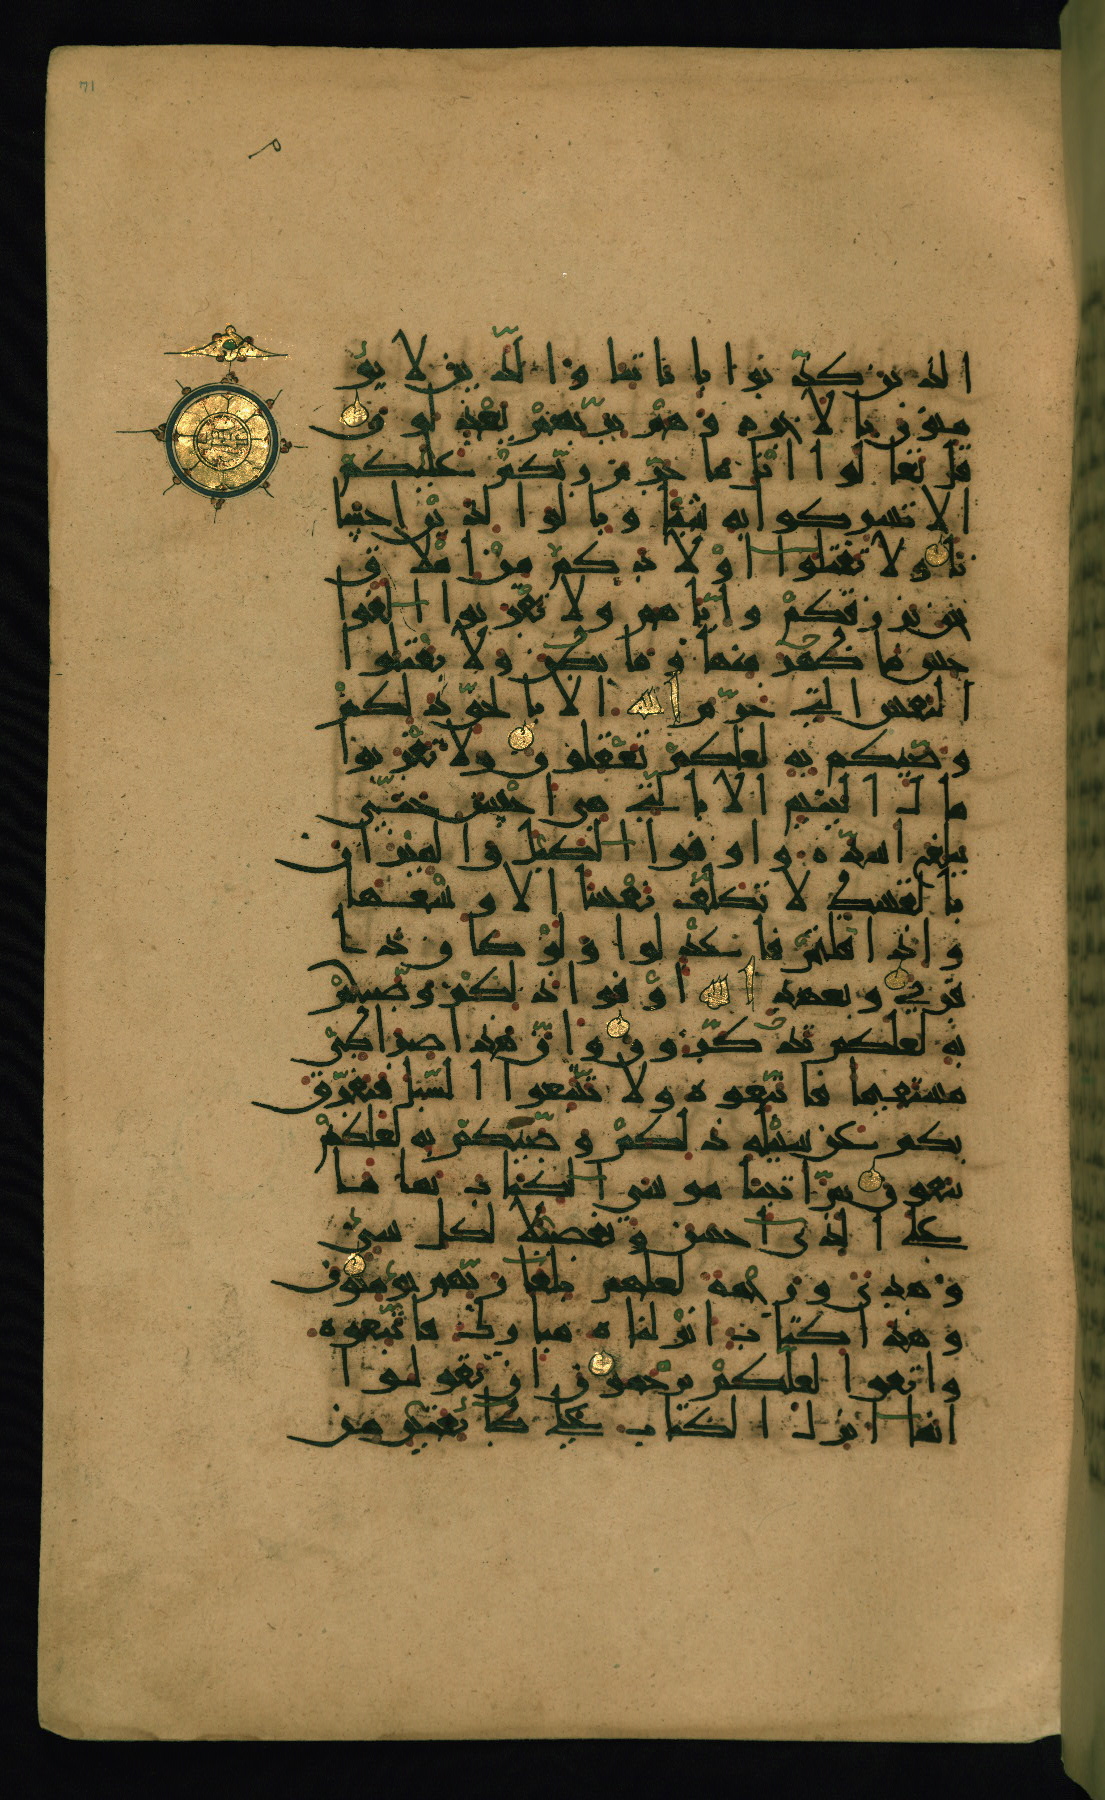 الذين كذبوا باياتنا والذين لا يؤ
منون بالاخره وهم بربهم يعدلون
قل تعالوا اتل ما حرم ربكم عليكم
الا تشركوا به شيئا وبالوالدين احسا
نا ولا تقتلوا اولادكم من املاق
نحن نرزقكم واياهم ولا تقربوا الفوا
حش ما ظهر منها وما بطن ولا تقتلوا
النفس التي حرم الله الا بالحق ذلكم
وصيكم به لعلكم تعقلون ولا تقربوا
مال اليتيم الا بالتي هي احسن حتى
يبلغ اشده واوفوا الكيل والميزان
بالقسط لا نكلف نفسا الا وسعها
واذا قلتم فاعدلوا ولو كان ذا
قربى وبعهد الله اوفوا ذلكم وصيكم
به لعلكم تذكرون وان هذا صراطي
مستقيما فاتبعوه ولا تتبعوا السبل فتفرق
بكم عن سبيله ذلكم وصيكم به لعلكم
تتقون ثم اتينا موسى الكتاب تماما
على الذي احسن وتفصيلا لكل شيء
وهدى ورحمة لعلهم بلقا ربهم يؤمنون
وهذا كتاب انزلناه مبارك فاتبعوه
واتقوا لعلكم ترحمون ان تقولوا
انما انزل الكتاب على طائفتين من
71